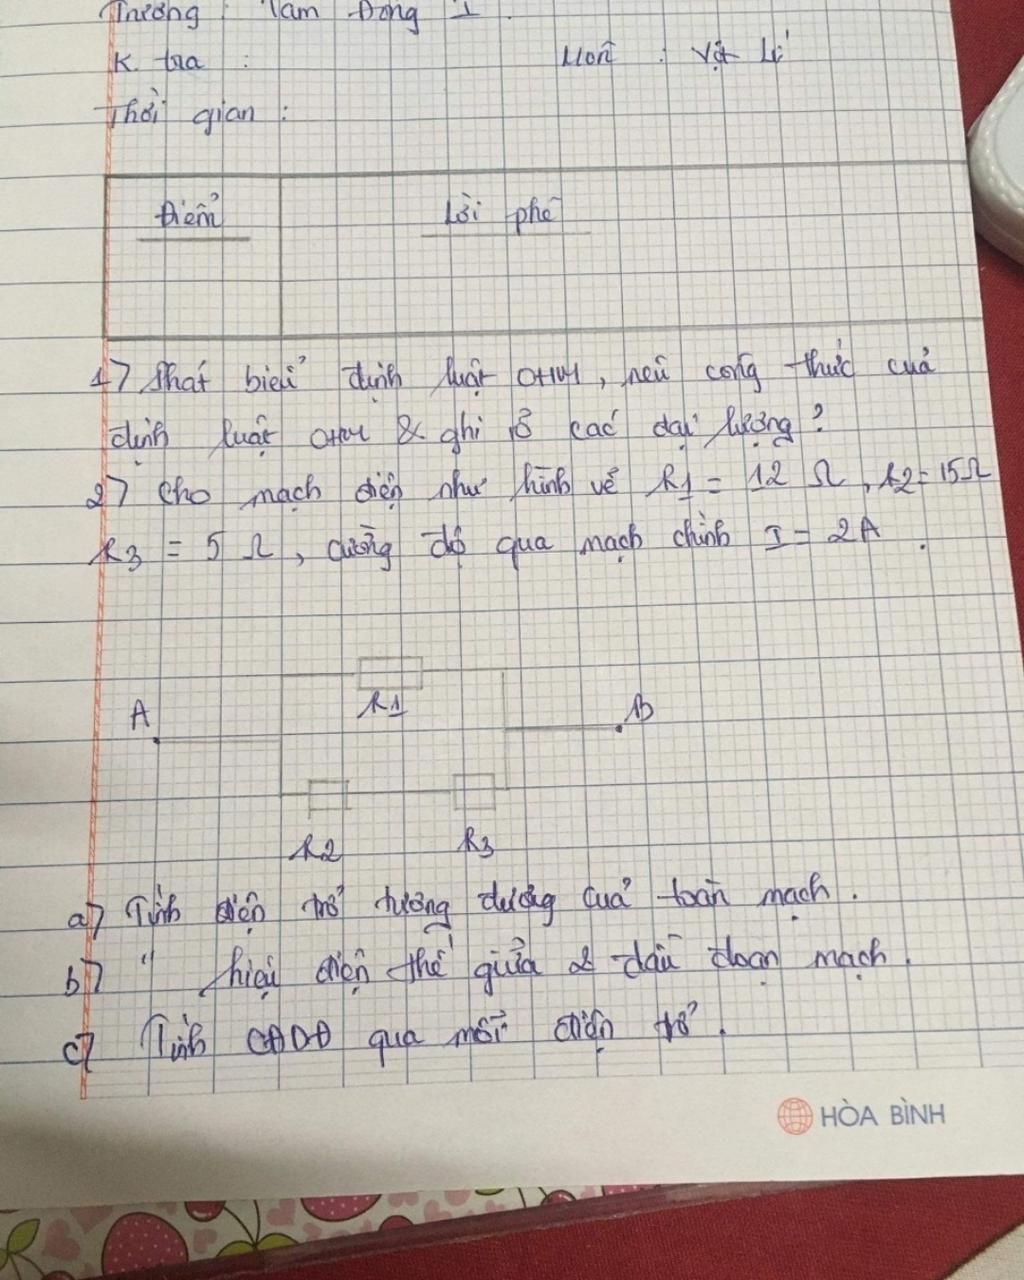 Trường : Tam Đông 1.
K tra :
Môn : Vật Lí
Thời gian :
Điểm
Lời phê
1) Phát biểu định luật OHM, nêu công thức của
định luật OHM & ghi rõ các đại lượng?
2) Cho mạch điện như hình vẽ R1 = 12 Ω, R2 = 15Ω
R3 = 5 Ω, cường độ qua mạch chính I = 2A.
R1
A
B
R2 R3
a) Tính điện trở tương đương của toàn mạch.
b) " hiệu điện thế giữa 2 đầu đoạn mạch.
c) Tính CĐDĐ qua mỗi điện trở.
HÒA BÌNH